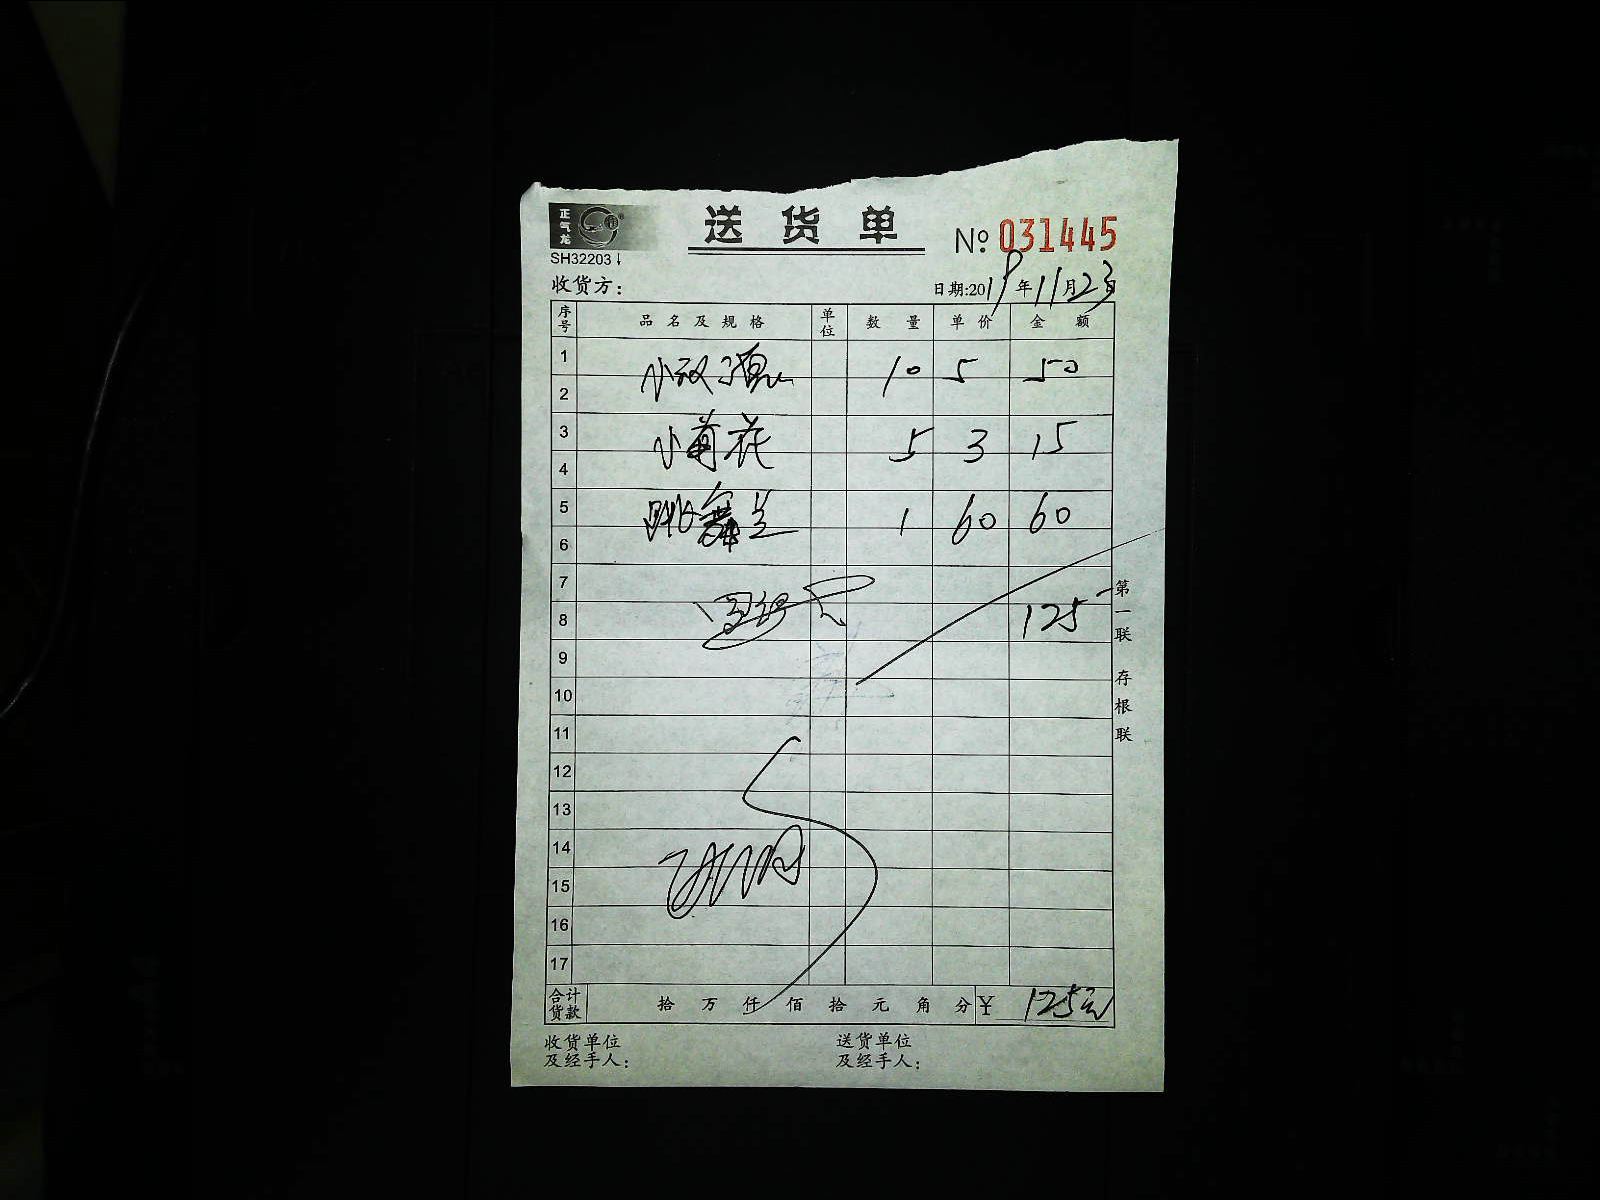 正气龙
送货单
№ 031445
SH32203
收货方：
日期:2019年11月23日
序号 品名及规格 单位 数量 单价 金额
1 小 10 5 50
2
3 小荷花 5 3 15
4
5 跳舞兰 1 60 60
6
7
8 125
9
10
11
12
13
14
15
16
17
第一联 存根联
合计货款 拾 万 仟 佰 拾 元 角 分 ￥ 125元
收货单位及经手人： 送货单位及经手人：